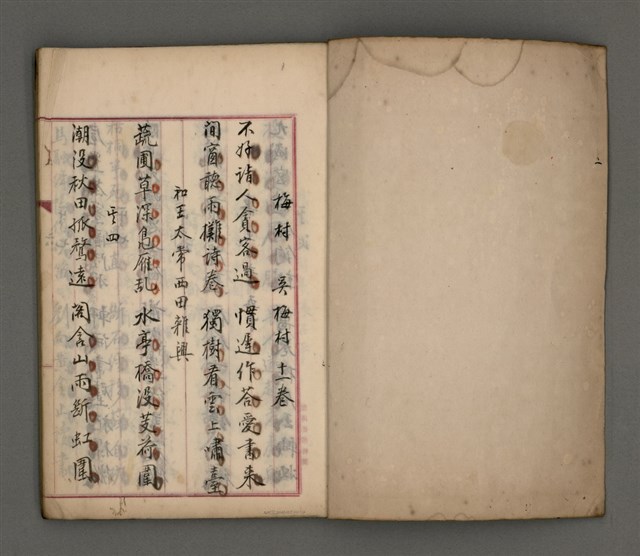 梅村　吳梅村　十一卷
不好詣人貪客過　慣遲作答愛書來
間窗聽雨攤詩卷　獨樹看雲上嘯臺
和王太常西田雜興
蔬圃草深鳧雁乱　水亭橋没芰荷圍
其四
潮没秋田孤鶩遠　閣含山雨断虹圍